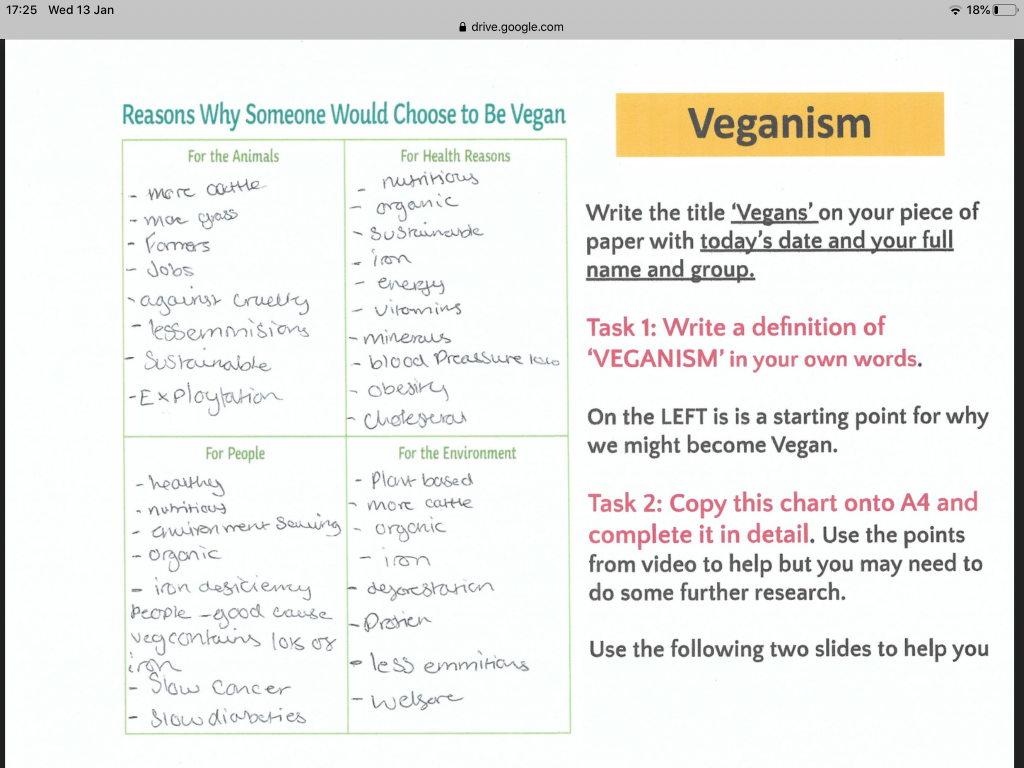 17:25 Wed 13 Jan
18%
drive.google.com
Reasons Why Someone Would Choose to Be Vegan
For the Animals
- more cattle
- moe grass
- Farmers
- Jobs
- against cruelty
- less emmisions
- Sustainable
- Exploytation
For Health Reasons
- nutritious
- organic
- sustainable
- iron
- energy
- vitamins
- minerals
- blood Preassure low
- obesity
- cholesterol
For People
- healthy
- nutritious
- environment saving
- organic
- iron deficiency
People - good cause
veg contains lots of
iron
- Slow cancer
- Slow diabeties
For the Environment
- Plant based
- more cattle
- organic
- iron
- deforestation
- Protien
- less emmitions
- welfare
Veganism
Write the title ‘Vegans’ on your piece of
paper with today’s date and your full
name and group.
Task 1: Write a definition of
‘VEGANISM’ in your own words.
On the LEFT is is a starting point for why
we might become Vegan.
Task 2: Copy this chart onto A4 and
complete it in detail. Use the points
from video to help but you may need to
do some further research.
Use the following two slides to help you